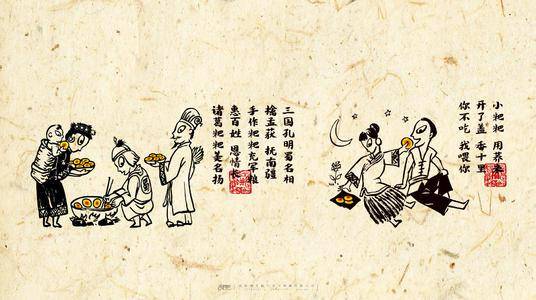 三国孔明蜀名相
擒孟获 抚南疆
手作粑粑充军粮
惠百姓 恩情长
诸葛粑粑美名扬
小粑粑 用荞
开了盖 香十里
你不吃 我喂你